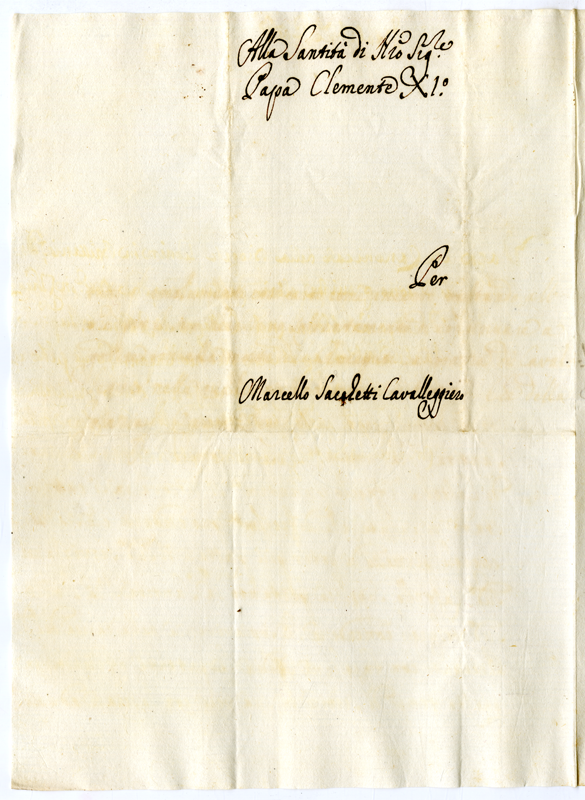 Alla Santità di Nro Sig.re
Papa Clemente XI.o
Per
Marcello Sacchetti Cavalleggiero